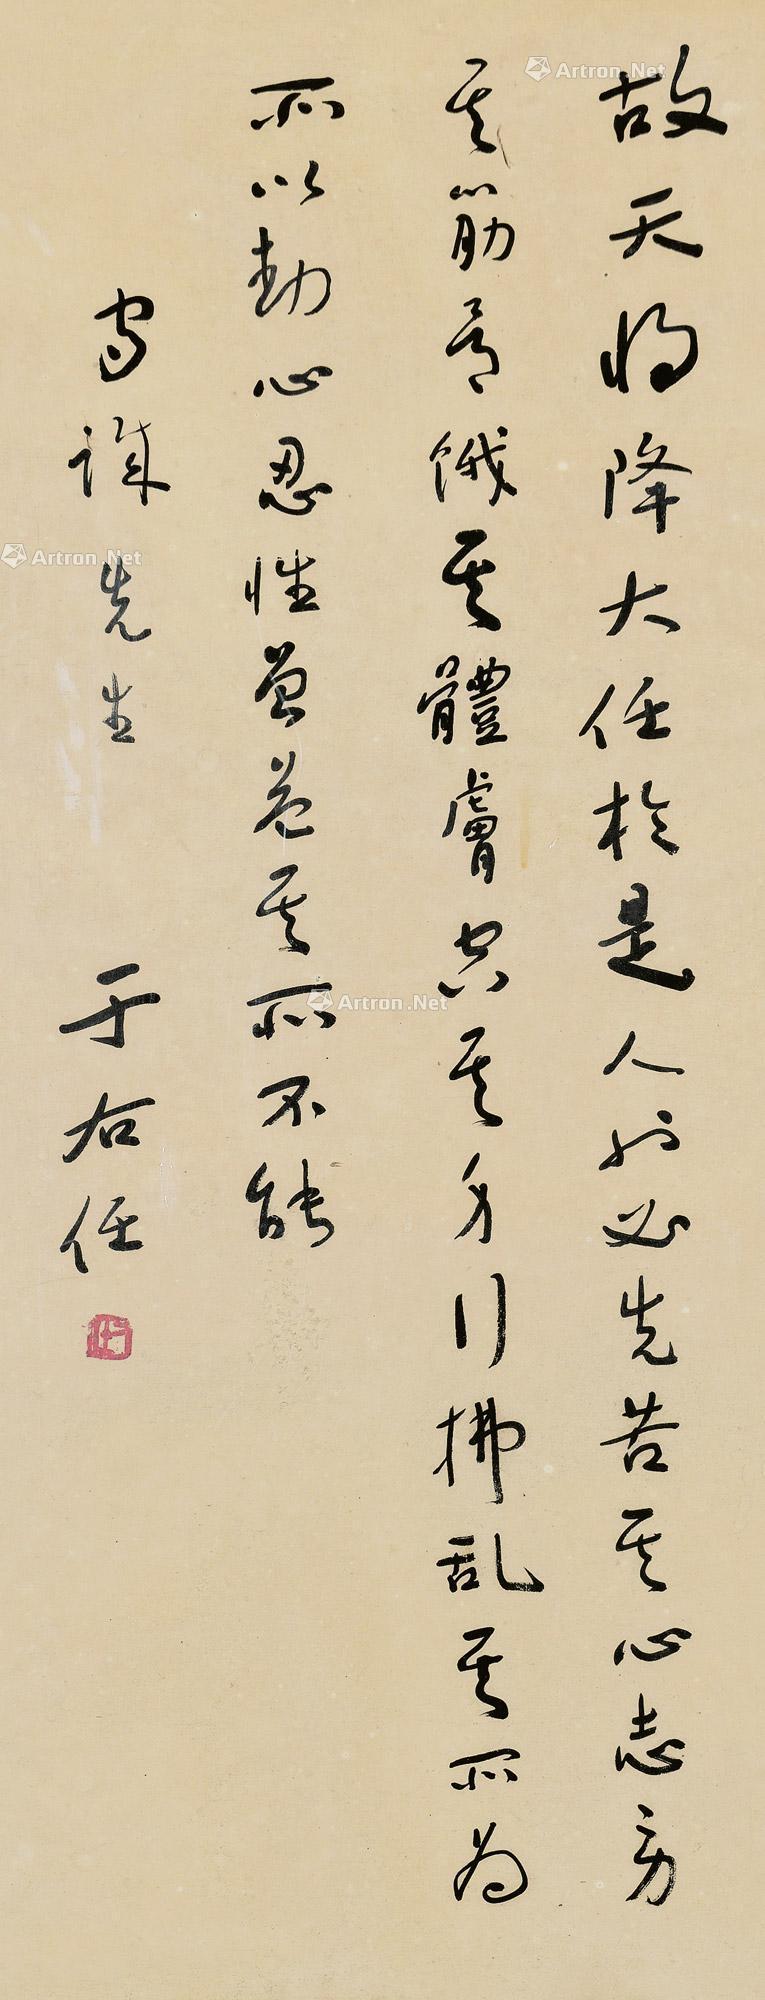 故天將降大任於是人也必先苦其心志勞
其筋骨餓其體膚空其身行拂乱其所為
所以動心忍性曾益其所不能
守誠先生 于右任
Artron.Net
Artron.Net
Artron.Net